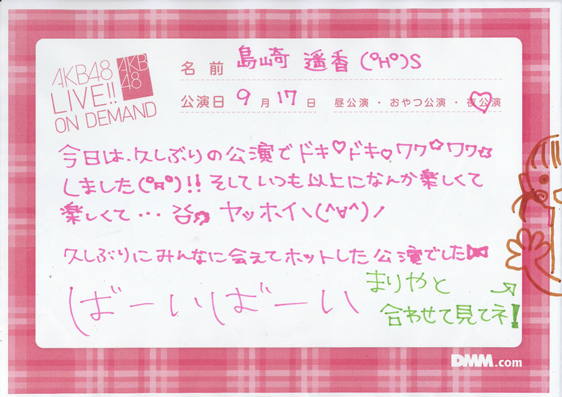 AKB48
LIVE!!
ON DEMAND
AKB
48
名前 島崎 遥香 (°H°)S
公演日 9月17日 昼公演・おやつ公演・夜公演
今日は、久しぶりの公演でドキ♡ドキ♡ワク☆ワク☆
しました(°H°)!! そしていつも以上になんか楽しくて
楽しくて…
ヤッホイ\(^∀^)/
久しぶりにみんなに会えてホットした公演でした
ばーいばーい
まりやと
合わせて見てネ!
DMM.com